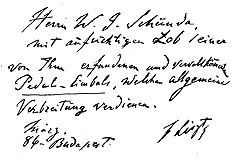 Herrn W. J. Schunda,
mit aufrichtigen Lob seiner
von Ihm erfundenen und vervollkommt
Pedal-Cimbals, welches allgemeine
Verbreitung verdienen.
März,
86. Budapest. F Liszt